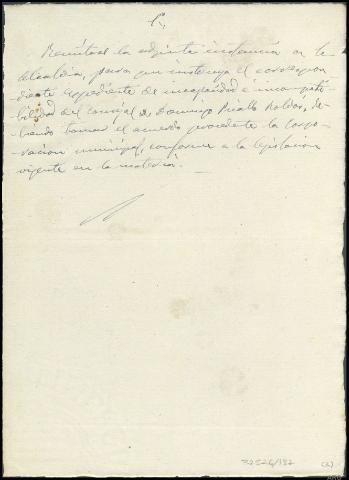 Remítase la adjunta instancia a la
Alcaldía, para que instruya el correspon-
diente expediente de incapacidad é incompati-
bilidad del concejal D. Domingo Roldós, de-
biendo tomar el acuerdo procedente la Corpo-
ración municipal, conforme a la legislación
vigente en la materia.
(2)